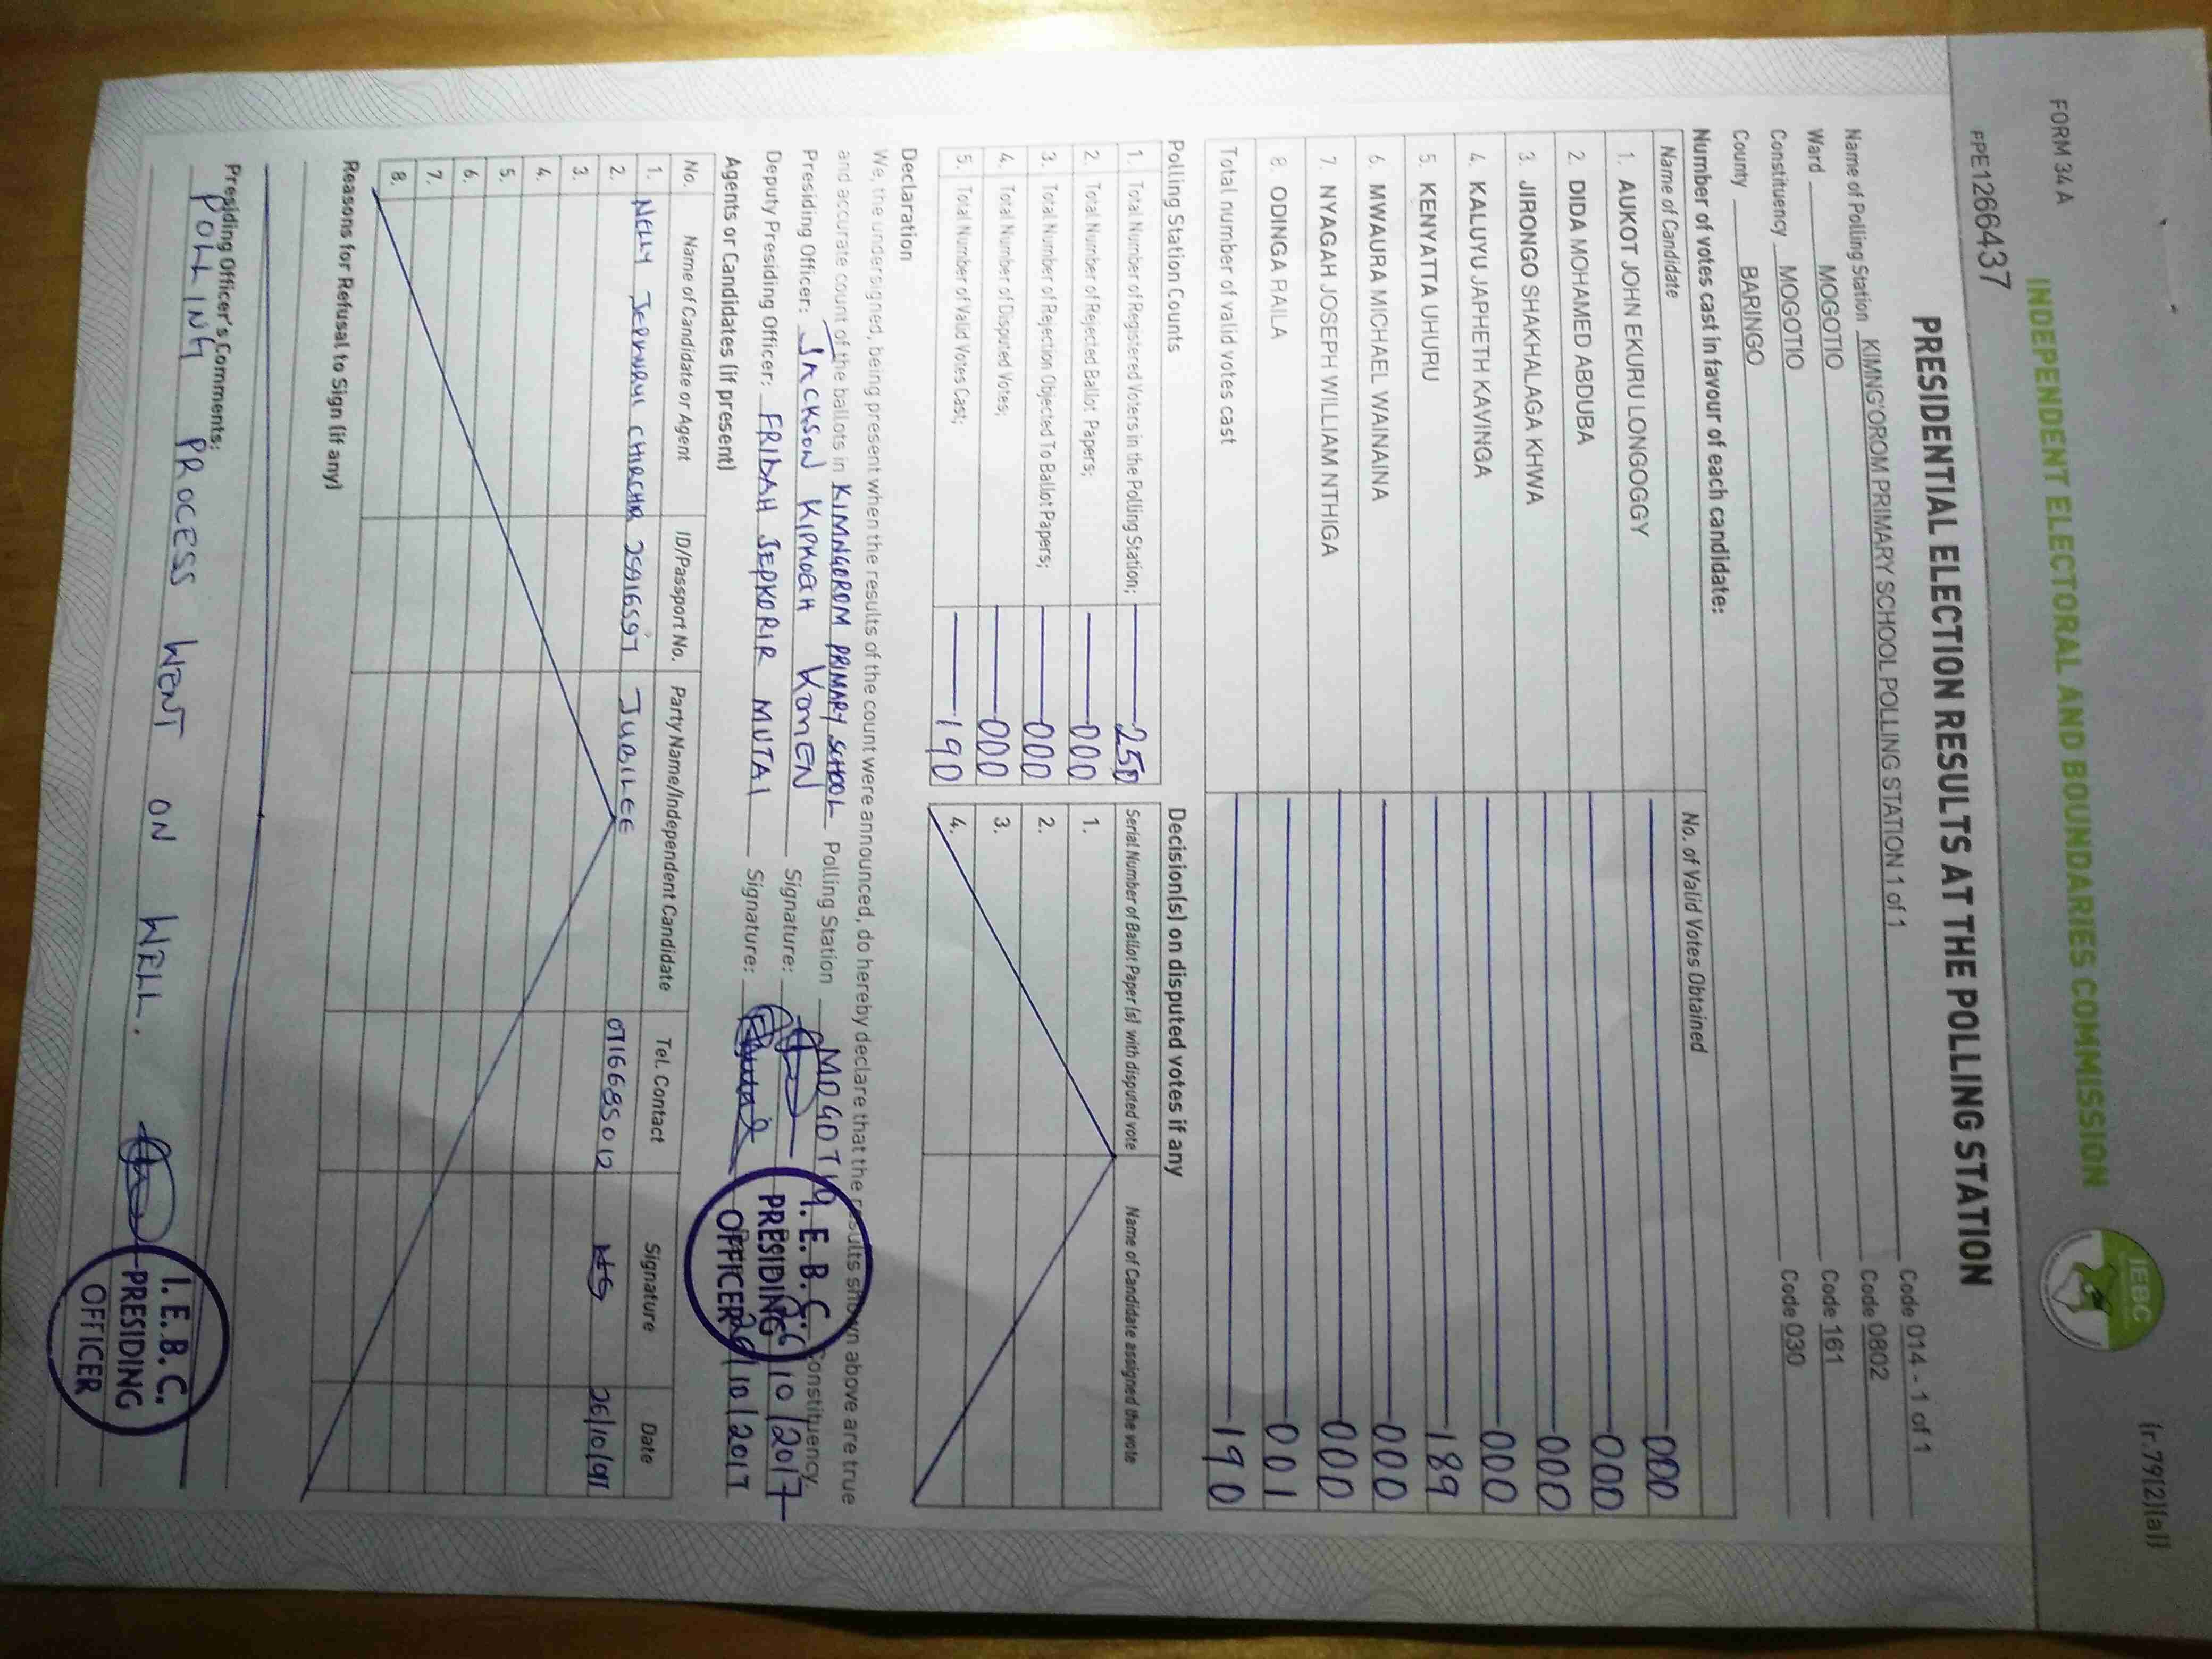 FORM 34 A
(r.79(2)(a))
INDEPENDENT ELECTORAL AND BOUNDARIES COMMISSION
IEBC
PRESIDENTIAL ELECTION RESULTS AT THE POLLING STATION
PPE1266437
Name of Polling Station KIMNG'OROM PRIMARY SCHOOL POLLING STATION 1 of 1 Code 014 - 1 of 1
Ward MOGOTIO Code 0802
Constituency MOGOTIO Code 161
County BARINGO Code 030
Number of votes cast in favour of each candidate:
Name of Candidate No. of Valid Votes Obtained
1. AUKOT JOHN EKURU LONGOGGY 000
2. DIDA MOHAMED ABDUBA 000
3. JIRONGO SHAKHALAGA KHWA 000
4. KALUYU JAPHETH KAVINGA 000
5. KENYATTA UHURU 189
6. MWAURA MICHAEL WAINAINA 000
7. NYAGAH JOSEPH WILLIAM NTHIGA 000
8. ODINGA RAILA 001
Total number of valid votes cast 190
Polling Station Counts
1. Total Number of Registered Voters in the Polling Station; 250
2. Total Number of Rejected Ballot Papers; 000
3. Total Number of Rejection Objected To Ballot Papers; 000
4. Total Number of Disputed Votes; 000
5. Total Number of Valid Votes Cast; 190
Decision(s) on disputed votes if any
Serial Number of Ballot Paper (s) with disputed vote Name of Candidate assigned the vote
1.
2.
3.
4.
Declaration
We, the undersigned, being present when the results of the count were announced, do hereby declare that the results shown above are true
and accurate count of the ballots in KIMNGOROM PRIMARY SCHOOL Polling Station MOGOTIO Constituency.
Presiding Officer: JACKSON KIPKOECH KOMEN Signature: 26/10/2017
Deputy Presiding Officer: FRIDAH JEPKORIR MUTAI Signature: 26/10/2017
I.E.B.C.
PRESIDING
OFFICER
Agents or Candidates (if present)
No. Name of Candidate or Agent ID/Passport No. Party Name/Independent Candidate Tel. Contact Signature Date
1. NELLY 25916597 JUBILEE 0716685012 26/10/917
2.
3.
4.
5.
6.
7.
8.
Reasons for Refusal to Sign (if any)
Presiding Officer's Comments:
POLLING PROCESS WENT ON WELL.
I.E.B.C.
PRESIDING
OFFICER